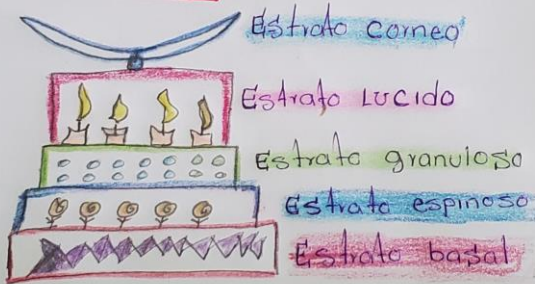 Estrato corneo
Estrato LUCIDO
Estrato granuloso
Estrato espinoso
Estrato basal